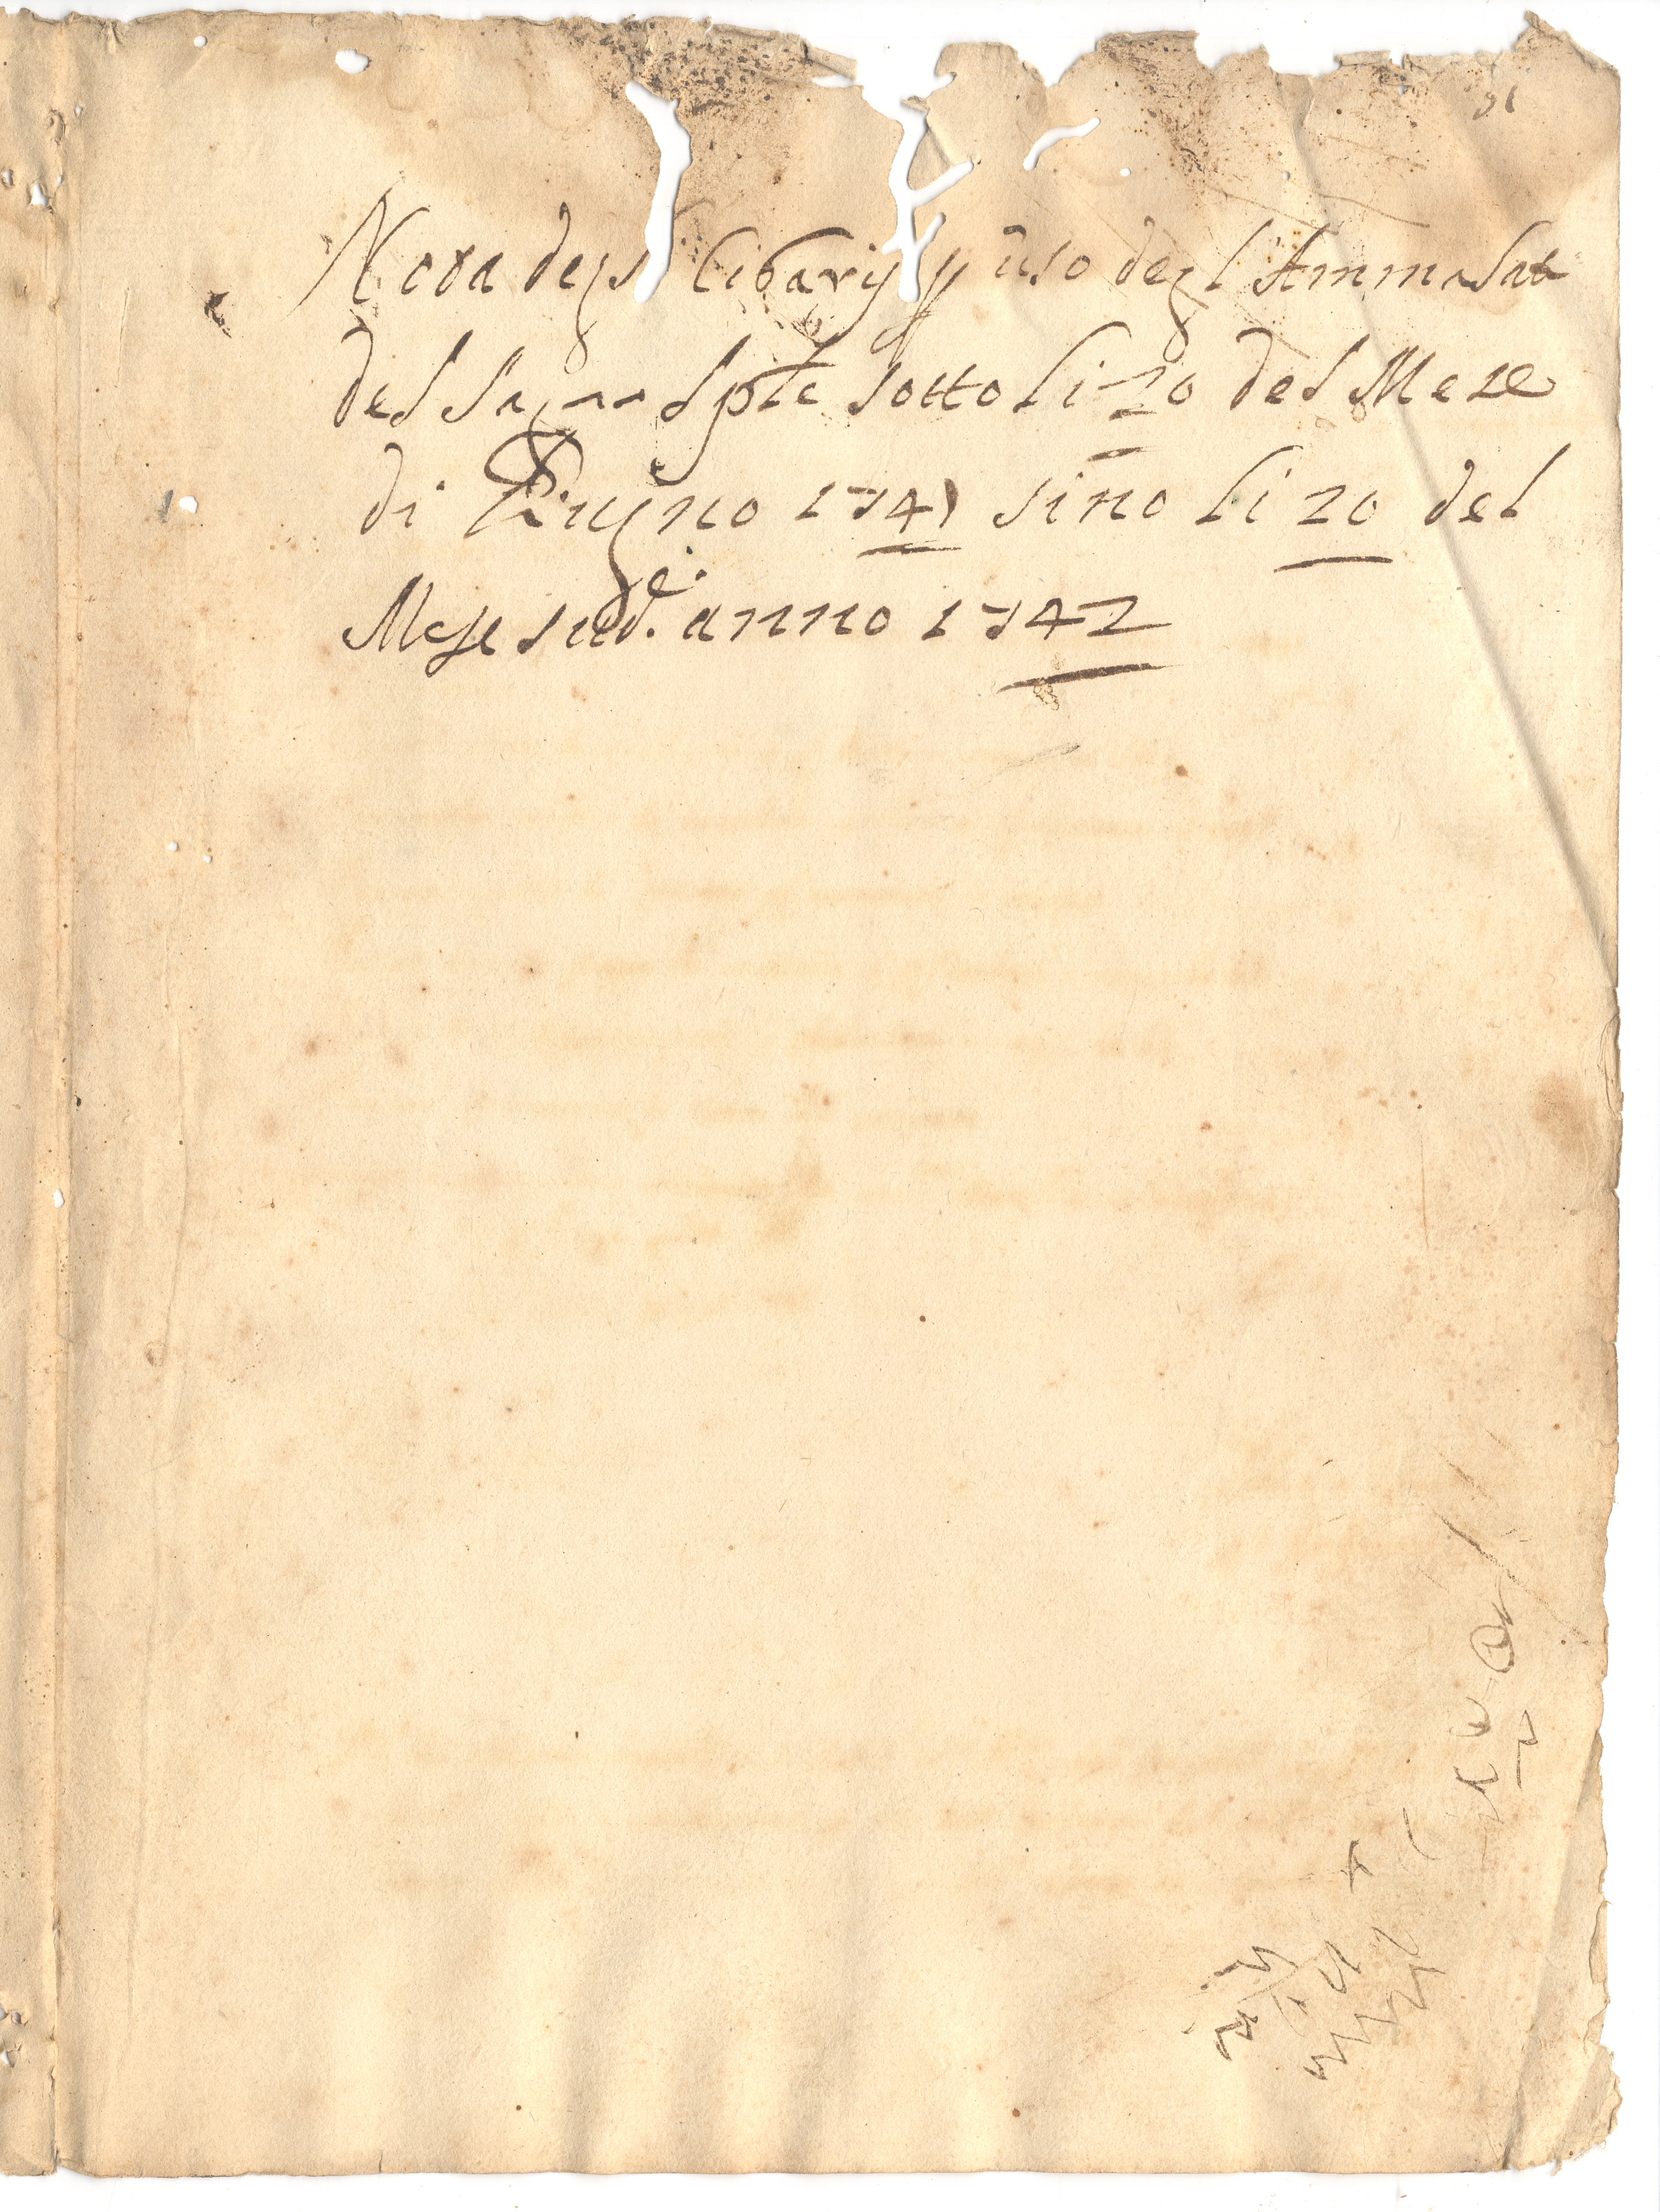 Nota degli Cibarij p uso degl Ammalati
del Sagro Sple sotto li 20 del Mese
di Giugno 1741 sino li 20 del
Mese sude. anno 1742